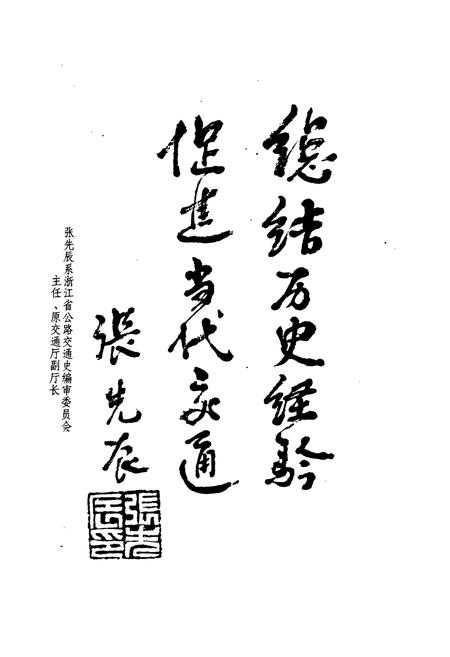 總结历史经验
促进当代交通
張先辰
張先辰印
张先辰系浙江省公路交通史编审委员会
主任、原交通厅副厅长